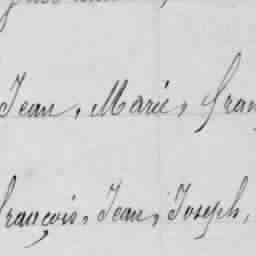 Jean, Marie, Fran
François, Jean, Joseph,